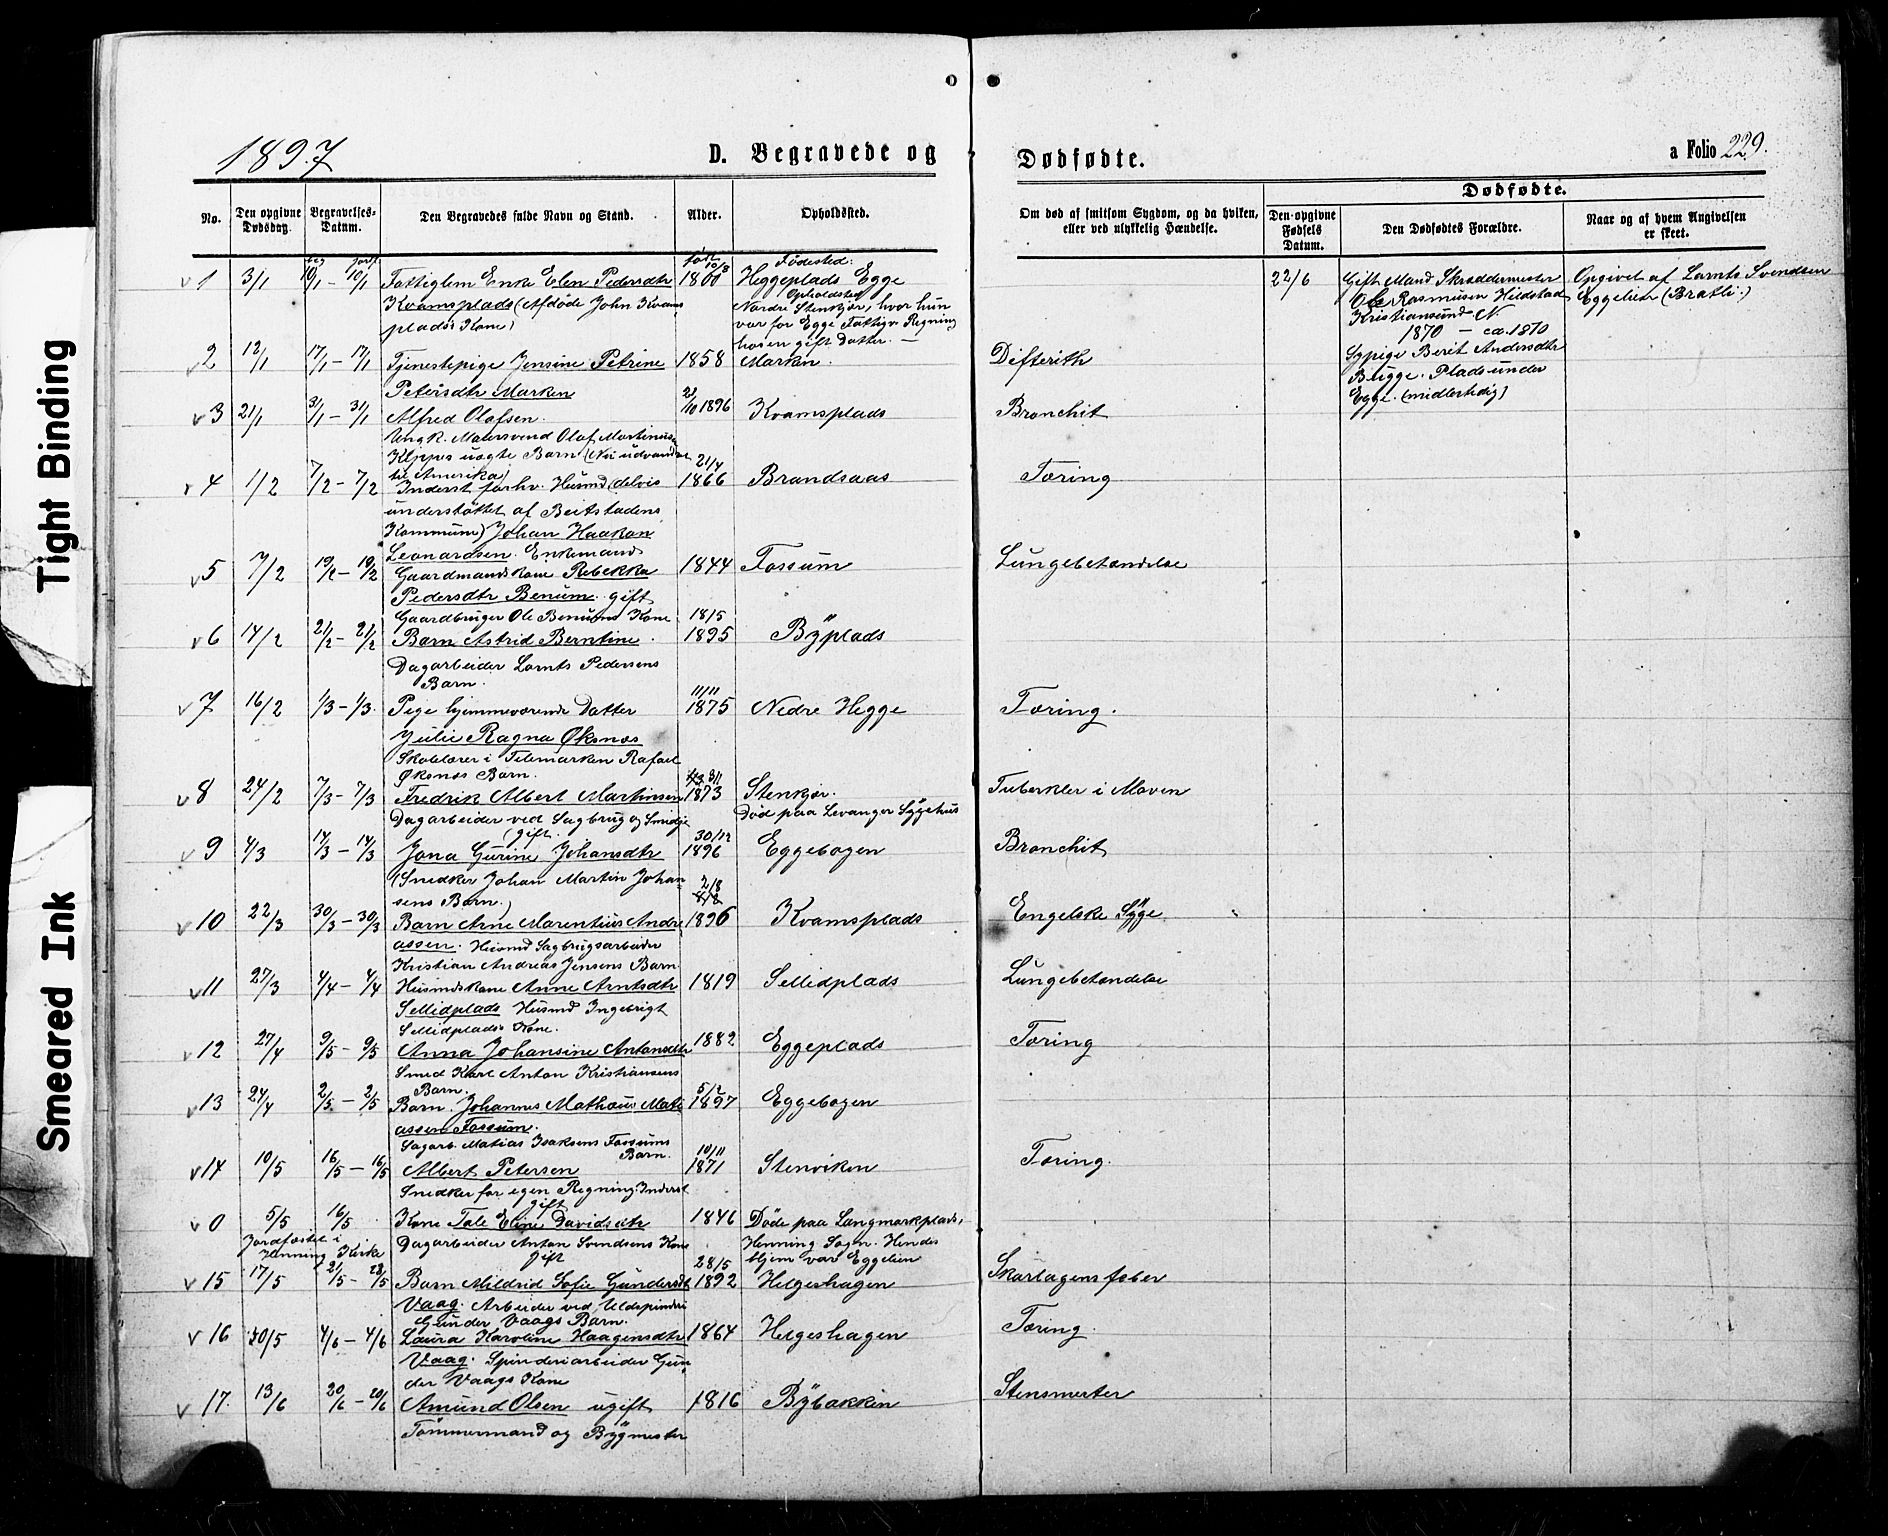 Tight Binding
Smeared Ink
1897
D. Begravede og Dødfødte.
a Folio 229.
No.
Den opgivne Dødsdag.
Begravelses-Datum.
Den Begravedes fulde Navn og Stand.
Alder.
Opholdssted.
Om død af smitsom Sygdom, og da hvilken, eller ved ulykkelig Hændelse.
Dødfødte.
Den opgivne Fødsels Datum.
Den Dødfødtes Forældre.
Naar og af hvem Angivelsen er skeet.
beg jordf. født 10/8 Fødested:
1 3/1 10/1 – 10/1 Fattiglem Enke Elen Pedersdtr 1801 Heggeplads Egge
Kvamsplads (Afdøde John Kvams- Opholdsted
plads's Kone) Nordre Stenkjør, hvor hun
var for Egge Fattigv. Regning
hosen gift Datter. —
22/6 Gift Mand Skræddermester Opgivet af Lornts Svendsen
Ole Rasmussen Hildstad Eggelien (Bratli.)
Kristiansund N
1870 — ca. 1870
Sypige Berit Andersdtr
Bugge. Plads under
Egge. (midlertidig)
2 12/1 17/1 – 17/1 Tjenestepige Jensine Petrine 1858 Marken. Difterith
Petersdtr Marken
3 21/1 31/1 – 31/1 Alfred Olafsen. 2/10 1896 Kvamsplads Bronchit
Ungk. Møllersvend Olaf Martinus
Kleppes uægte Barn (Nu udvandret
til Amerika)
4 1/2 7/2 – 7/2 Inderst forhv. Husmd (delvis 21/4 1866 Brandsaas Tæring
understøttet af Beitstadens
Kommune) Johan Haakon
Leonardsen. Enkemand
5 7/2 19/2 – 19/2 Gaardmandskone Rebekka 1844 Fossum Lungebetændelse
Pedersdtr Benum. gift
Gaardbruger Ole Benums Kone
6 14/2 21/2 – 21/2 Barn Astrid Berntine. 18/5 1895 Byplads
Dagarbeider Lornts Pedersens
Barn.
7 16/2 1/3 – 1/3. Pige hjemmeværende Datter 11/11 1875 Nedre Hegge Tæring.
Julie Ragna Øksnæs
Skolelærer i Telemarken Rafael
Øksnæs Barn.
8 24/2 7/3 – 7/3 Fredrik Albert Martinsen 3/11 1873 Stenkjær. Tuberkler i Maven
Dagarbeider ved Sagbrug og Smidje Død paa Levanger Sygehus
(gift.
9 4/3 14/3 – 14/3 Jona Gurine Johansdtr 30/12 1896 Eggebogen Bronchit
(Snedker Johan Martin Johan-
sens Barn.)
10 22/3 30/3 – 30/3 Barn Arne Marentius Andre 2/8 1896 Kvamsplads Engelske Syge.
assen. Husmd Sagbrugsarbeider
Kristian Andreas Jensens Barn.
11 27/3 4/4 – 4/4 Husmdskone Anne Arntsdtr 1819 Sellidplads Lungebetændelse
Sellidplads Husmd Ingebrigt
Sellidplads's Kone.
12 27/4 9/5 – 9/5 Anna Johansine Antonsdtr 1882 Eggeplads Tæring
Smed Karl Anton Kristiansens
Barn.
13 24/4 2/5 – 2/5 Barn. Johannes Mathæus Mati 5/2 1897 Eggebogen
assen Fossum.
Sagarb. Matias Isaksens Fossums
Barn.
14 10/5 16/5 – 16/5 Albert Petersen 10/11 1871 Stenviken Tæring.
Snedker for egen Regning. Inderst
gift
0 5/5 16/5 Kone Tale Eline Davidsdtr 1846 Døde paa Langmarkplads,
Jordfæstet i Henning Kirke
Dagarbeider Anton Svendsens Kone Henning Sogn. Hendes
Gift Hjem var Eggelien
15 17/5 21/5 – 23/5 Barn Mildrid Sofie Gundersdtr 28/5 1892 Helgeshagen Skarlagensfeber
Vaag. Arbeider ved Uldspinderi
Gunder Vaags Barn.
16 30/5 4/6 – 4/6 Laura Karoline Haagensdtr 1864 Helgeshagen Tæring.
Vaag. Spinderiarbeider Gun-
der Vaags Kone
17. 13/6 20/6 – 20/6 Amund Olsen ugift 1816 Bybakken Stensmerter
Tømmermand og Bygmester